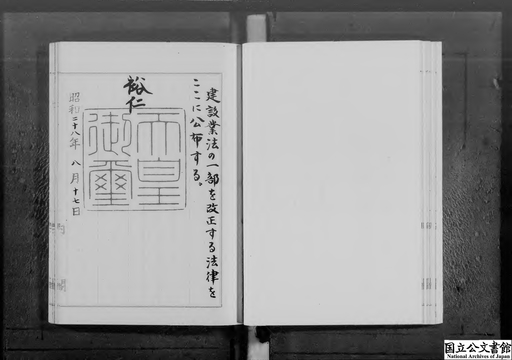 建設業法の一部を改正する法律を
ここに公布する。
裕仁
天皇
御璽
昭和二十八年八月十七日
国立公文書館
National Archives of Japan